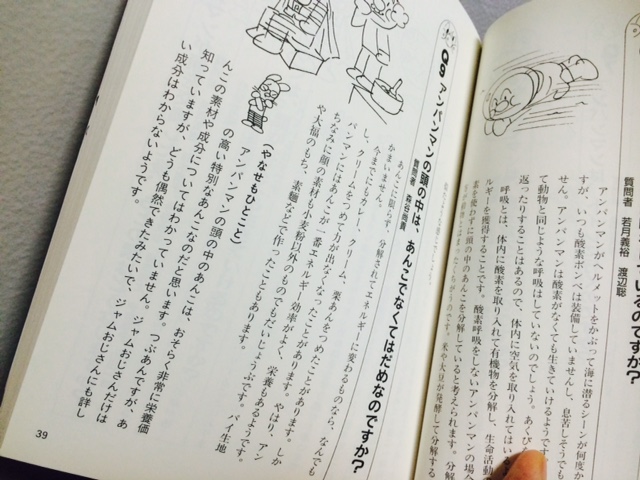 のですか?
質問者 若月義裕 渡辺聡
アンパンマンがヘルメットをかぶって海に潜るシーンが何度か
すが、いつも酸素ボンベは装備していませんし、息苦しそうでも
せん。アンパンマンは酸素がなくても生きていけるようです
て動物と同じような呼吸はしていないのでしょう。あくび
返ったりすることはあるので、体内に空気を取り入れてはい
呼吸とは、体内に酸素を取り入れて有機物を分解し、生命活動
ルギーを獲得することです。酸素呼吸をしないアンパンマンの場
素を使わずに頭の中のあんこを分解していると考えられます。分解
米や大豆が発酵して分解する
Q9 アンパンマンの頭の中は、あんこでなくてはだめなのですか?
質問者 森谷尚貴
あんこに限らず、分解されてエネルギーに変わるものなら、なんでも
かまいません。
今までにもカレー、クリーム、栗あんをつめたことがあります。しか
し、クリームをつめて力が出なくなったことがあります。やはり、アン
パンマンにはあんこが一番エネルギー効率がよく、栄養もあるようです。
ちなみに顔の素材も小麦粉以外のものでもだいじょうぶです。パイ生地
や大福のもち、素麺などで作ったこともあります。
(やなせもひとこと)
アンパンマンの頭の中のあんこは、おそらく非常に栄養価
の高い特別なあんこなのだと思います。つぶあんですが、あ
んこの素材や成分についてはわかっていません。ジャムおじさんだけは
知っていますが、どうも偶然できたみたいで、ジャムおじさんにも詳し
い成分はわからないようです。
39